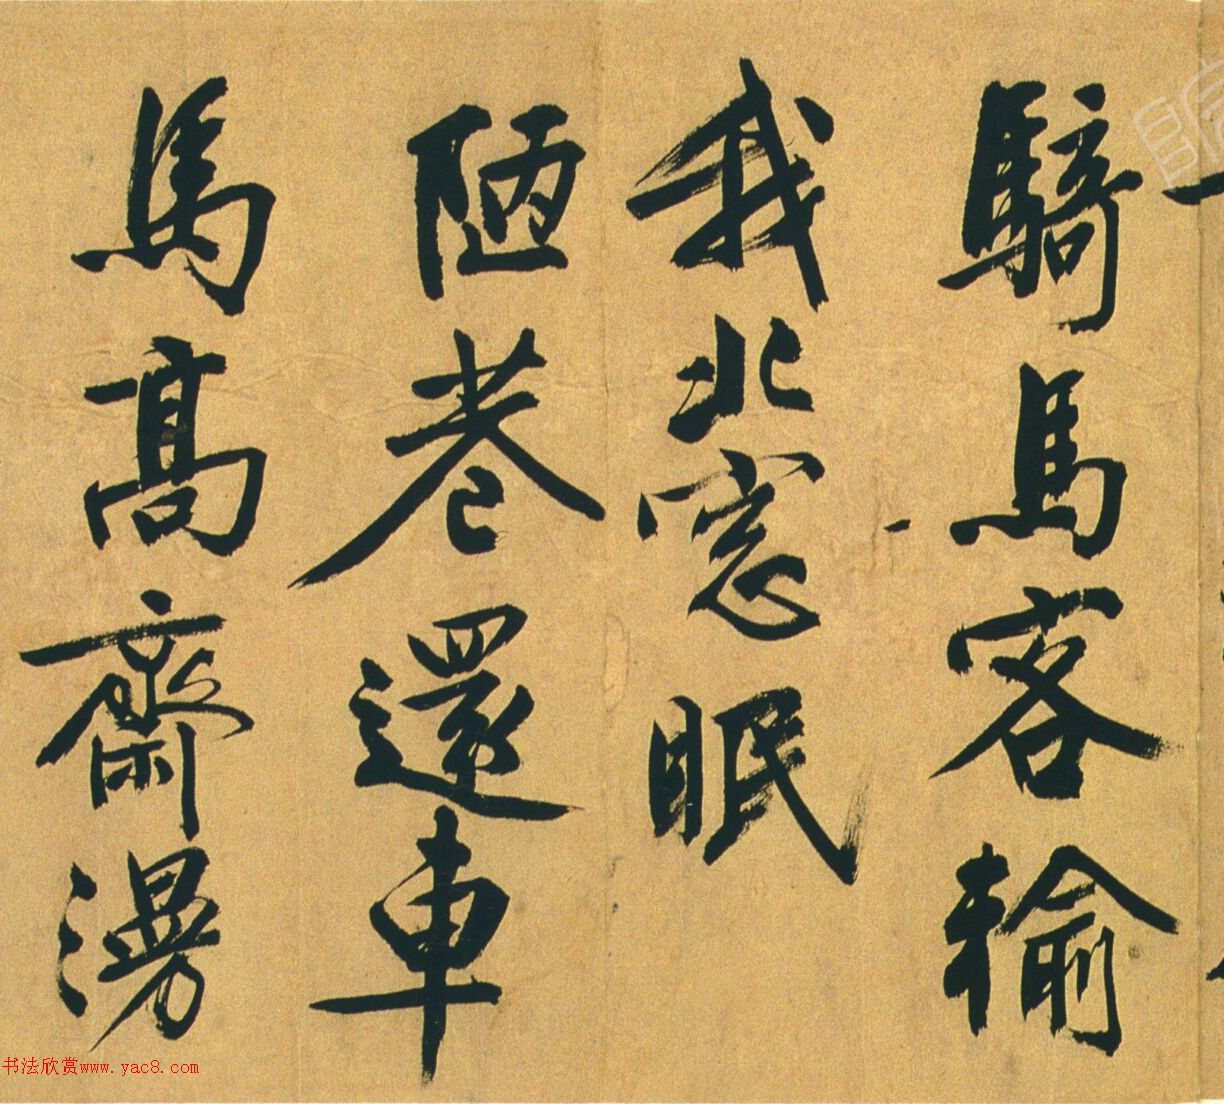 騎馬客輸
我北窓眠
陋巷還車
馬高齋漫
书法欣赏www.yac8.com